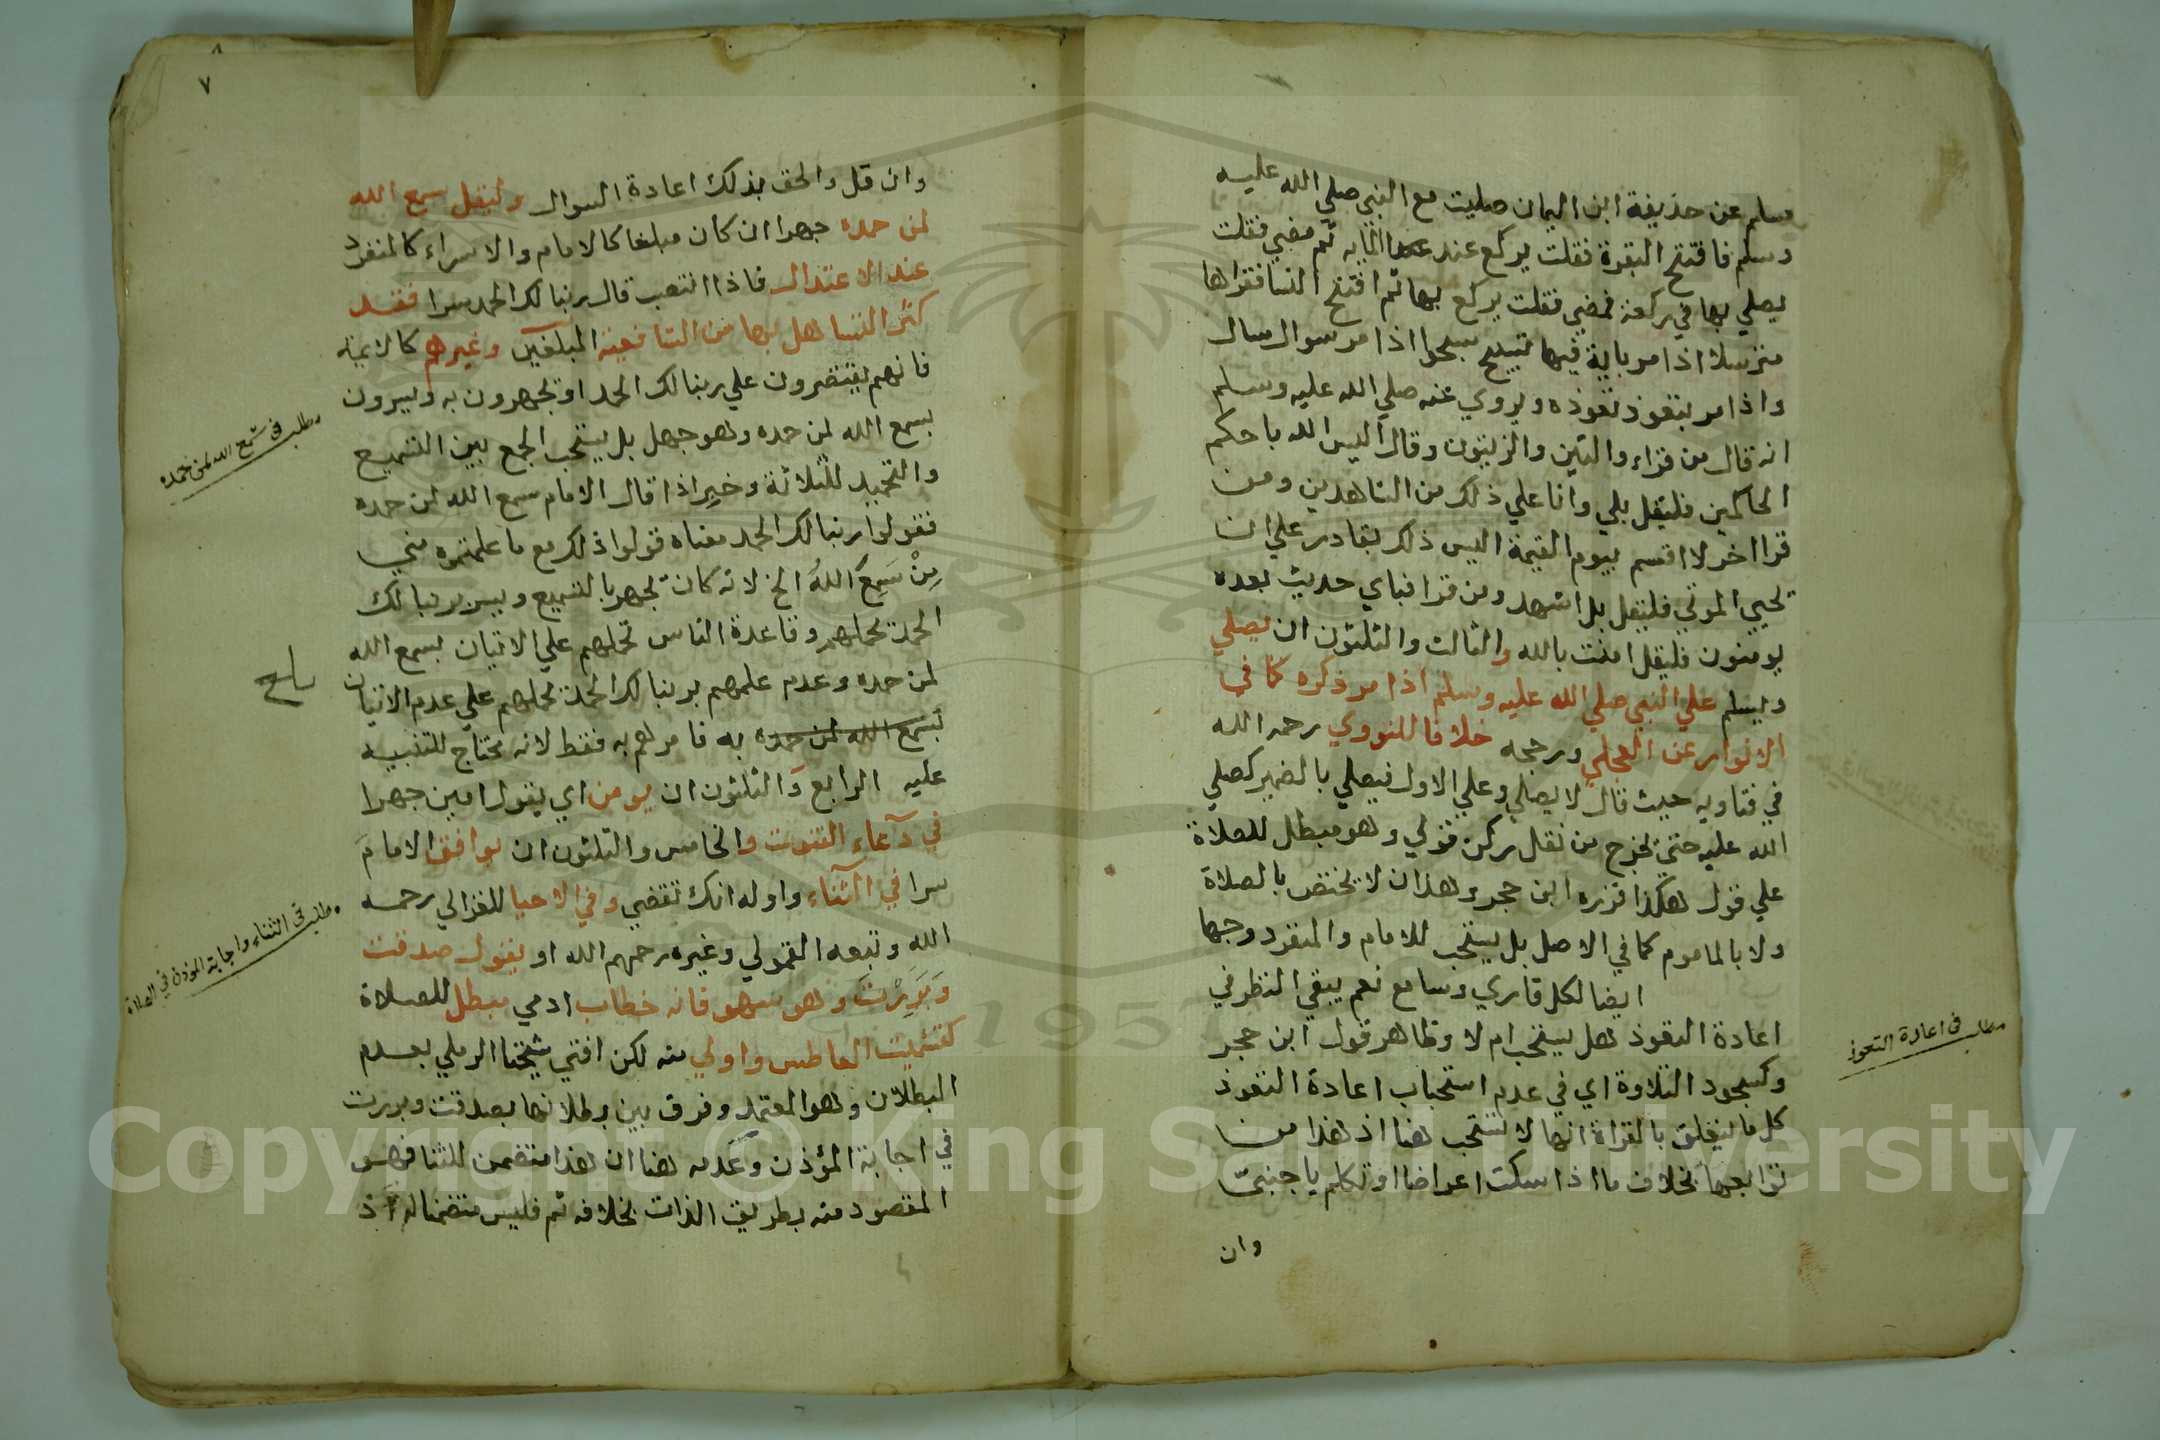 مسلم عن حذيفة ابن اليمان صليت مع النبي صلي الله عليه
وسلم فافتتح البقرة فقلت يركع عند المايه ثم مضي فقلت
يصلي بها في ركعة فمضي فقلت يركع بها ثم افتتح النسا فقراها
مترسلا اذا مر باية فيها تسبيح سبحوا اذا مر سوال سال
واذا مر بتعوذ تعوذه ويروي عنه صلي الله عليه وسلم
انه قال من قراء والتين والزيتون وقال اليس الله باحكم
الحاكمين فليقل بلي وانا علي ذلك من الشاهدين ومن
قرا اخر لا اقسم بيوم القيمة اليس ذلك بقادر علي ان
تحيي الموتي فليقل بلا اشهد ومن قرا فباي حديث بعده
يومنون فليقل امنت بالله والثالث والثلثون ان يصلي
ويسلم علي النبي صلي الله عليه وسلم اذا مر ذكره كما في
الانوار عن العجلي ورجحه خلافا للنووي رحمه الله
في فتاويه حيث قال لا يصلي وعلي الاول فيصلي بالضمير كصلي
الله عليه حتي تخرج من نقل ركن قولي وهو مبطل للصلاة
علي قول هكذا قرره ابن حجر وهذان لا يختص بالصلاة
ولا بالماموم كما في الاصل بل يستحب للامام والمنفرد وجها
ايضا لكل قاري وسامع نعم يبقي النظر في
اعادة التعوذ هل يستحب ام لا وظاهر قول ابن حجر
وكسجود التلاوة اي في عدم استحباب اعادة التعوذ
كل ما يتعلق بالقراة انها لا تستحب هنا اذ هذا من
توابعها بخلاف ما اذا سكت اعراضا او تكلم باجنبي
وان
مطلب في اعادة التعوذ
٨
٧
وان قل والحق بذلك اعادة السوال وليقل سمع الله
لمن حمده جهرا ان كان مبلغا كالامام والاسراء كالمنفرد
عند الاعتدال فاذا انتصب قال ربنا لك الحمد سرا فقد
كثر التساهل بها من الشافعية المبلغين وغيرهم كالايمة
فانهم يقتصرون علي ربنا لك الحمد او يجهرون به ويسرون
بسمع الله لمن حمده وهو جهل بل يستحب الجمع بين التسميع
والتحميد للثلاثة وخبر اذا قال الامام سمع الله لمن حمده
فقولوا ربنا لك الحمد معناه قولوا ذلك مع ما علمتموه مني
مِنْ سَمِعَ اللهُ الخ لانه كان يجهر بالتسميع ويسر بربنا لك
الحمد تحملهم وقاعدة الناس تحملهم علي الاتيان بسمع الله
لمن حمده وعدم علمهم بربنا لك الحمد تحملهم علي عدم الاتيان
بسمع الله لمن حمده به فامرهم به فقط لانه محتاج للتنبيه
عليه الرابع والثلثون ان يومن اي يقول امين جهرا
في دعاء القنوت والخامس والثلثون ان يوافق الامام
سرا في الثناء واوله انك تقضي وفي الاحيا للغزالي رحمه
الله وتبعه القمولي وغيره رحمهم الله او يقول صدقت
وَبَرِرْتَ وهو سهو فانه خطاب ادمي مبطل للصلاة
كتشميت العاطس واولي منه لكن افتي شيخنا الرملي بعدم
البطلان وهو المعتمد وفرق بين بطلانها بصدقت وبررت
في اجابة المؤذن وعدمه هنا ان هذا متضمن للثنا فهو
المقصود منه بطريق الذات بخلافه ثم فليس متضمنا له اذ
مطلب في سمع الله لمن حمده
بلغ
مطلب في الثناء واجابة الموذن في الصلاة
Copyright © King Saud University
1957